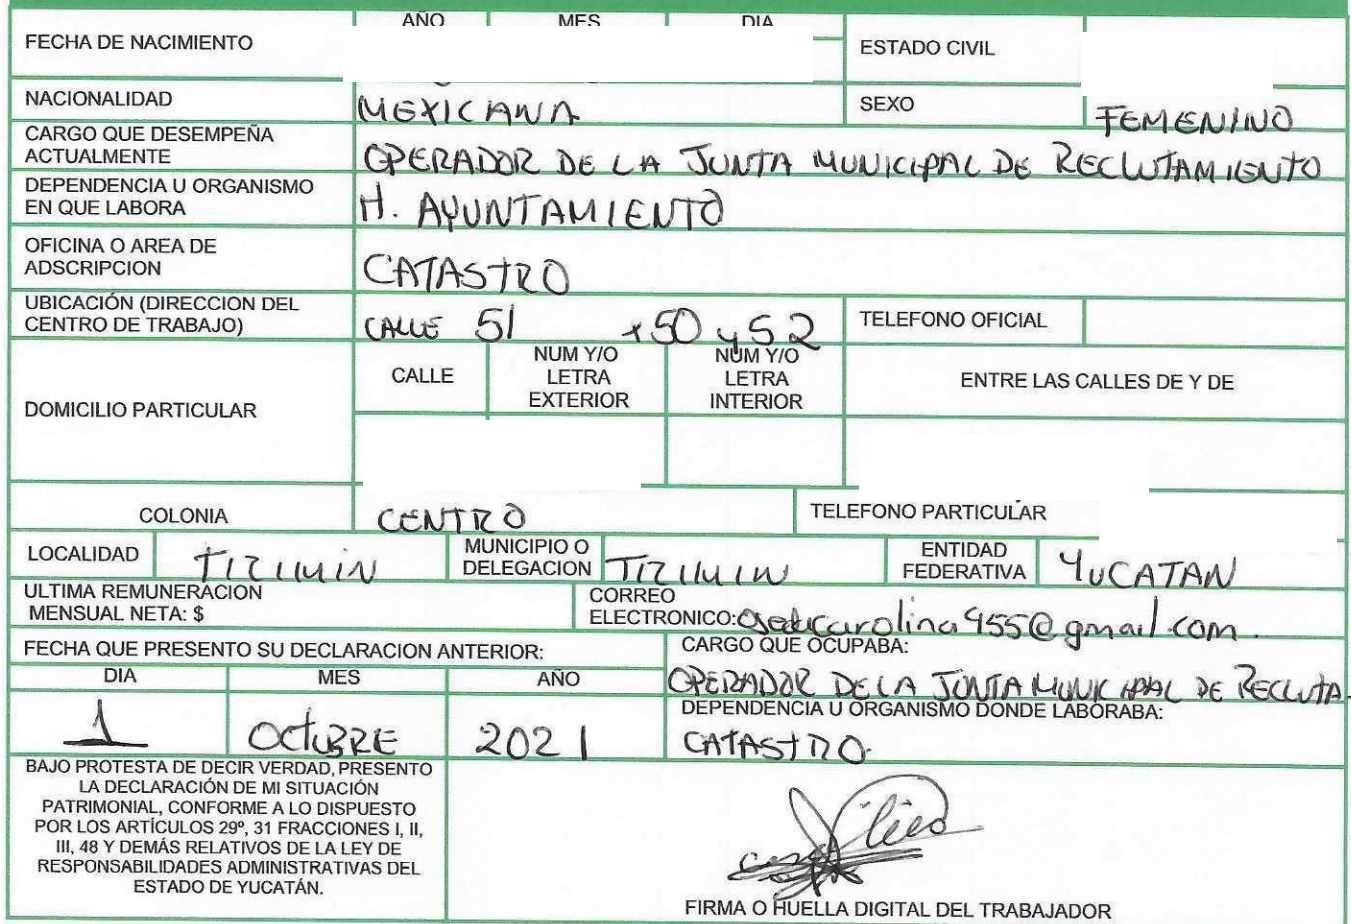 AÑO MES DIA
FECHA DE NACIMIENTO ESTADO CIVIL
NACIONALIDAD MEXICANA SEXO FEMENINO
CARGO QUE DESEMPEÑA
ACTUALMENTE OPERADOR DE LA JUNTA MUNICIPAL DE RECLUTAMIENTO
DEPENDENCIA U ORGANISMO
EN QUE LABORA H. AYUNTAMIENTO
OFICINA O AREA DE
ADSCRIPCION CATASTRO
UBICACIÓN (DIRECCION DEL
CENTRO DE TRABAJO) CALLE 51 x50 y 52 TELEFONO OFICIAL
DOMICILIO PARTICULAR
CALLE
NUM Y/O
LETRA
EXTERIOR
NUM Y/O
LETRA
INTERIOR
ENTRE LAS CALLES DE Y DE
COLONIA CENTRO TELEFONO PARTICULAR
LOCALIDAD TIZIMIN
MUNICIPIO O
DELEGACION TIZIMIN
ENTIDAD
FEDERATIVA YUCATAN
ULTIMA REMUNERACION
MENSUAL NETA: $
CORREO
ELECTRONICO:
FECHA QUE PRESENTO SU DECLARACION ANTERIOR:
DIA MES AÑO
1 OCTUBRE 2021
CARGO QUE OCUPABA:
OPERADOR DE LA JUNTA MUNICIPAL DE RECLUTA
DEPENDENCIA U ORGANISMO DONDE LABORABA:
CATASTRO.
BAJO PROTESTA DE DECIR VERDAD, PRESENTO
LA DECLARACIÓN DE MI SITUACIÓN
PATRIMONIAL, CONFORME A LO DISPUESTO
POR LOS ARTÍCULOS 29º, 31 FRACCIONES I, II,
III, 48 Y DEMÁS RELATIVOS DE LA LEY DE
RESPONSABILIDADES ADMINISTRATIVAS DEL
ESTADO DE YUCATÁN.
FIRMA O HUELLA DIGITAL DEL TRABAJADOR